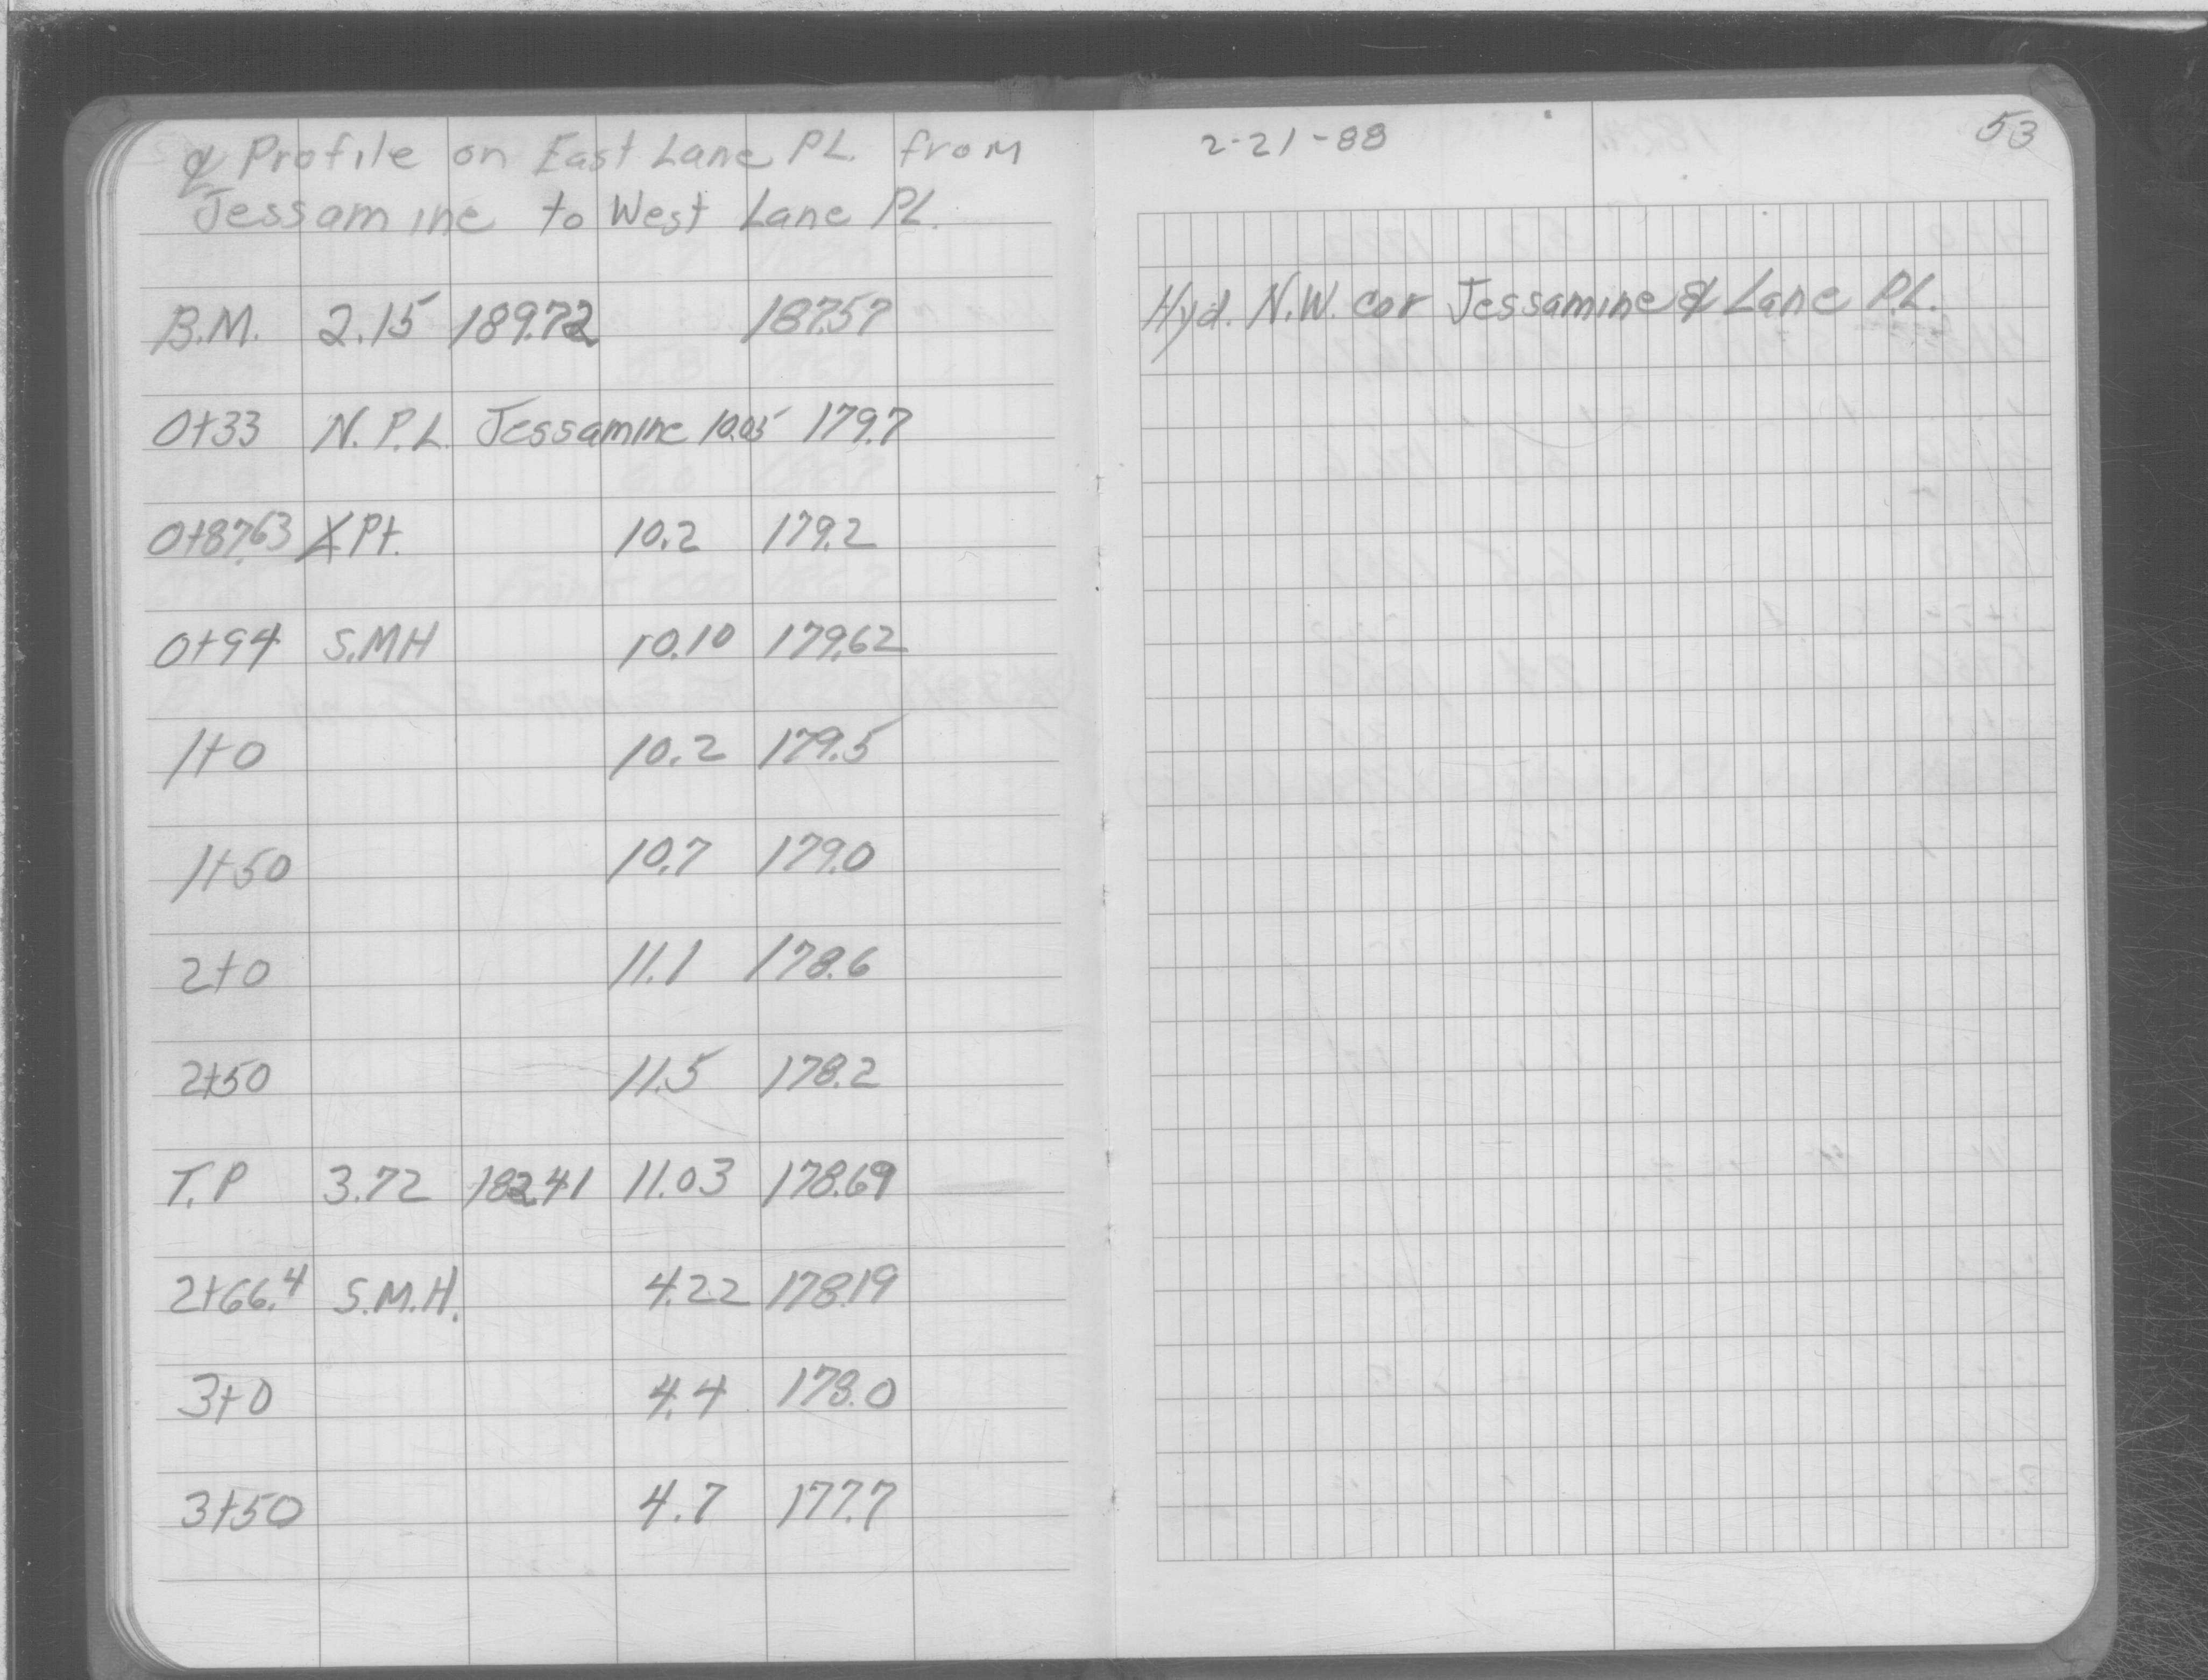 ℄ Profile on East Lane PL. from
Jessamine to West Lane PL.
B.M. 2.15 189.72 187.57
0+33 N.P.L. Jessamine 10.05 179.7
0+87.63 ∠ Pt. 10.2 179.2
0+94 S.MH 10.10 179.62
1+0 10.2 179.5
1+50 10.7 179.0
2+0 11.1 178.6
2+50 11.5 178.2
T.P 3.72 182.41 11.03 178.69
2+66.4 S.M.H. 4.22 178.19
3+0 4.4 178.0
3+50 4.7 177.7
2-21-88
53
Hyd. N.W. cor Jessamine & Lane PL.